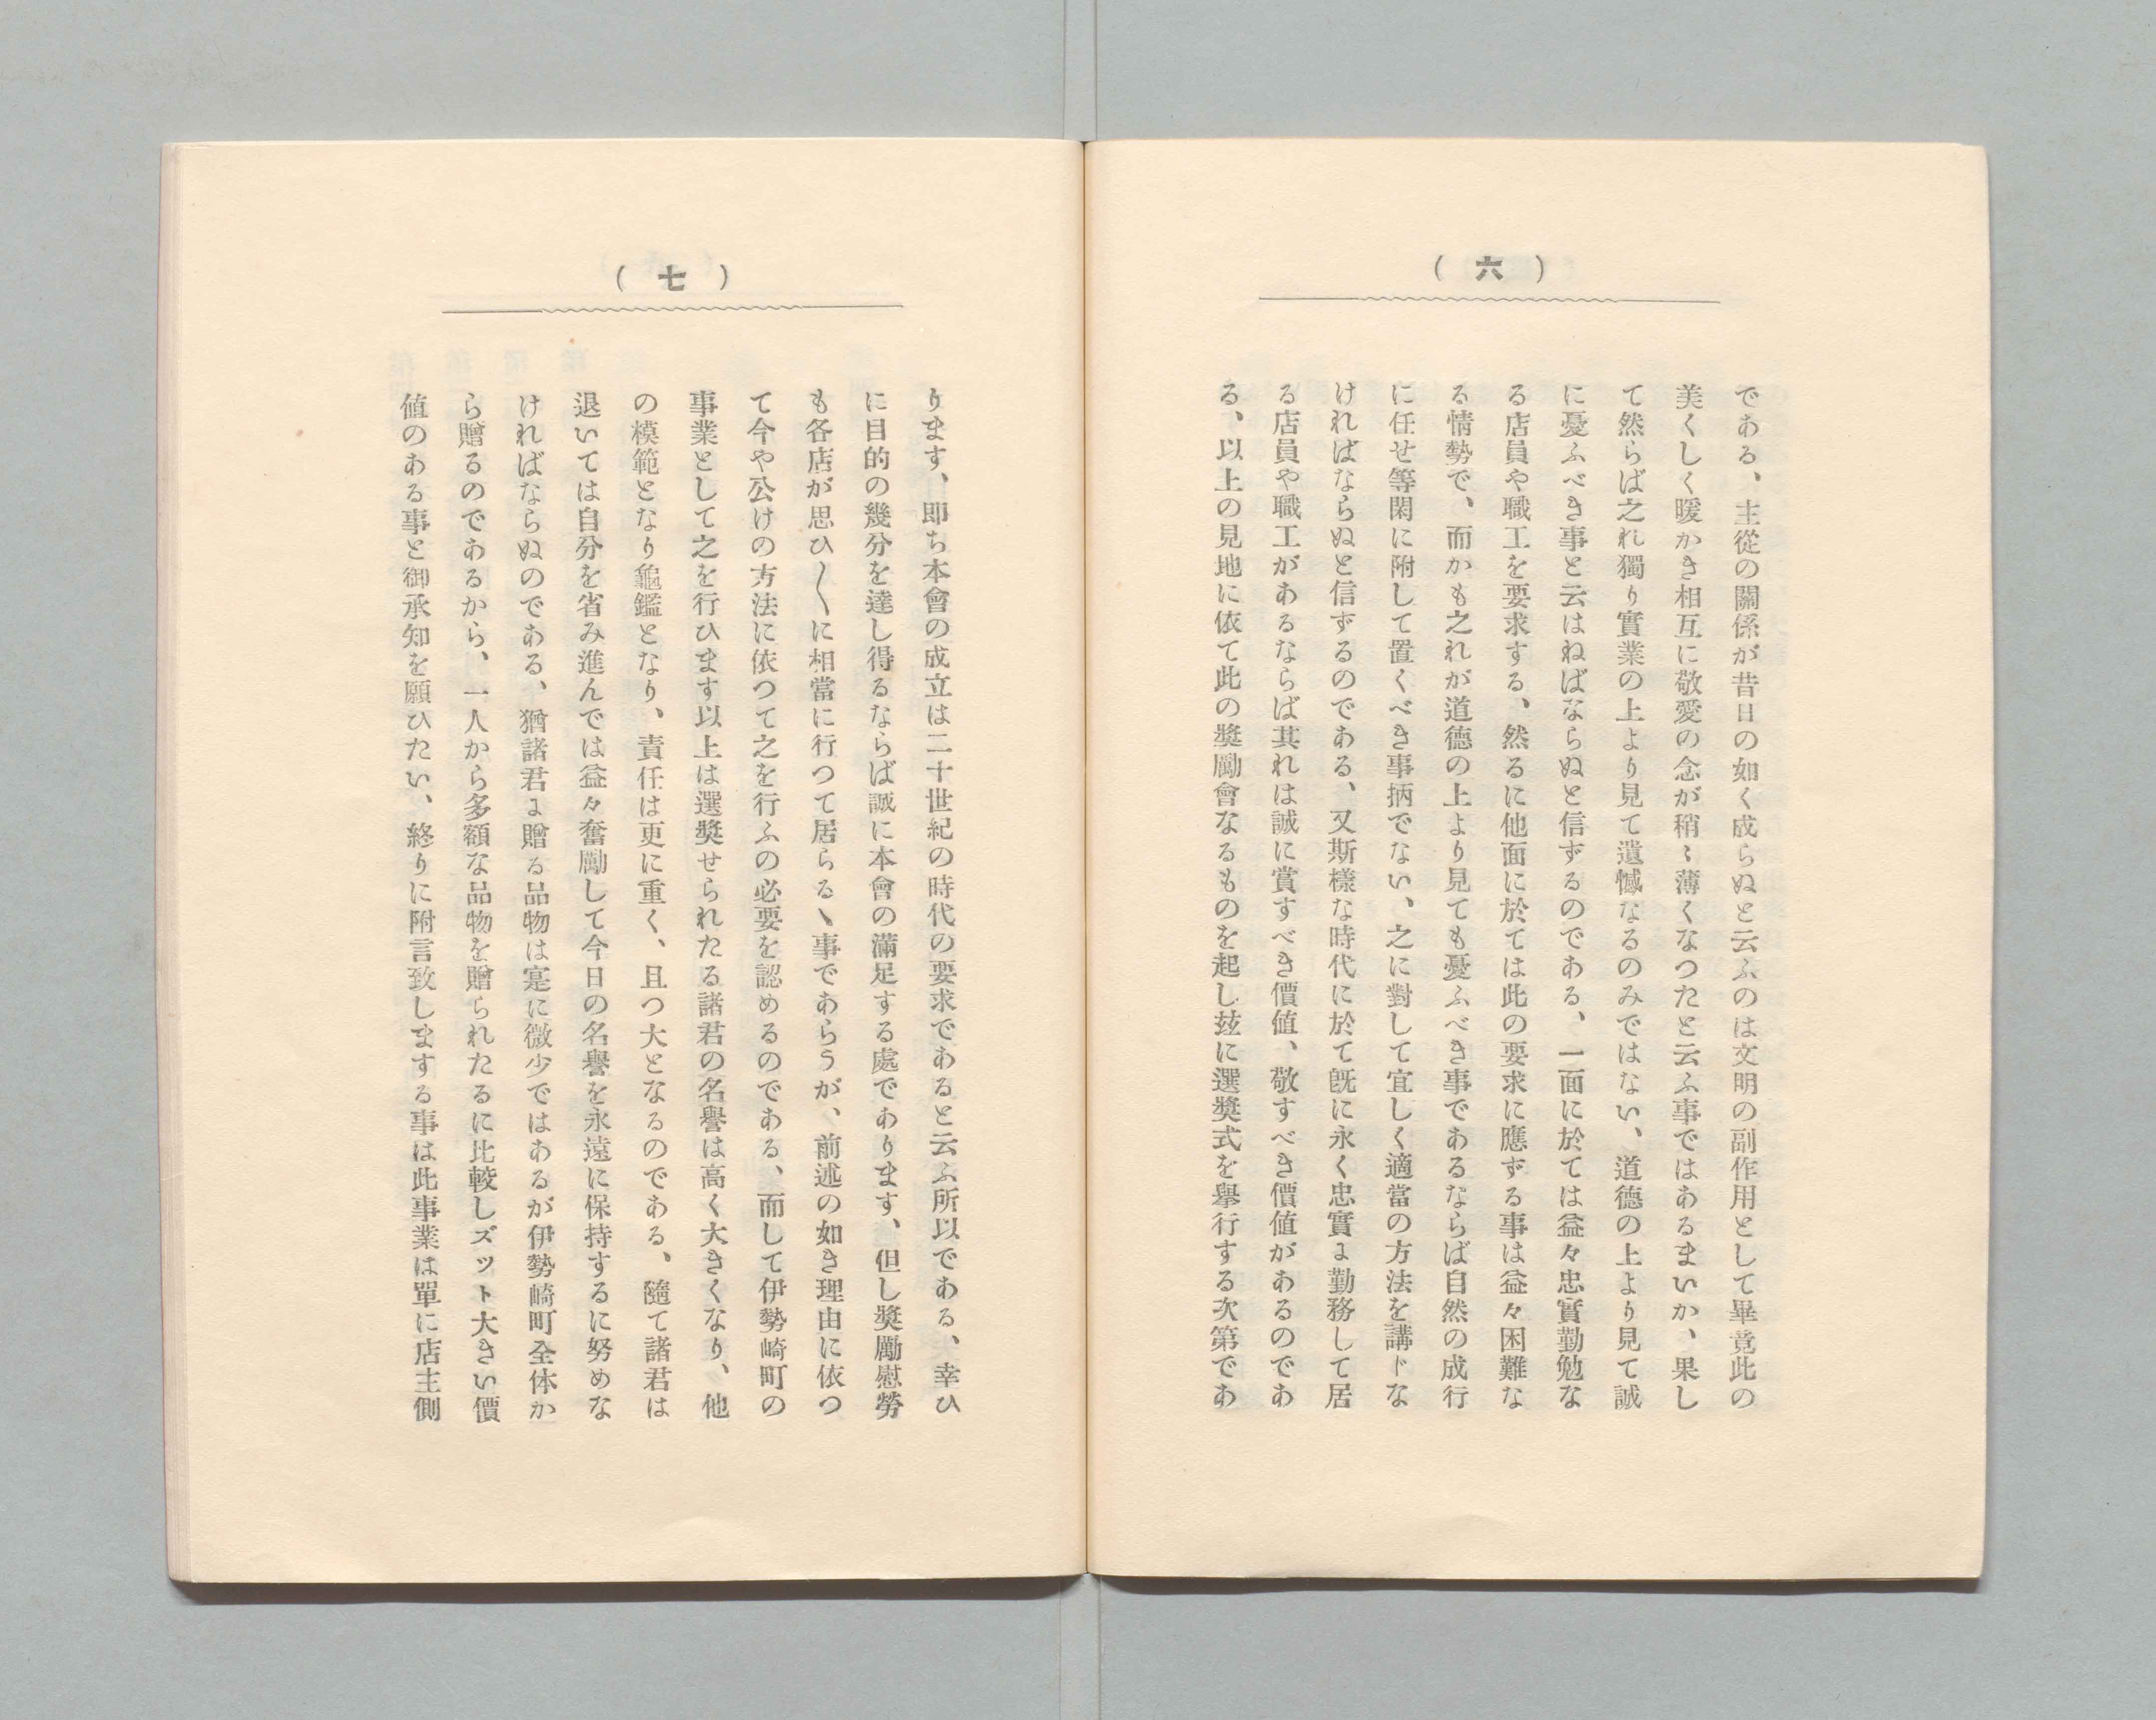 (六)
である、主從の關係が昔日の如く成らぬと云ふのは文明の副作用として畢竟此の
美くしく暖かき相互に敬愛の念が稍〻薄くなつたと云ふ事ではあるまいか、果し
て然らば之れ獨り實業の上より見て遺憾なるのみではない、道德の上より見て誠
に憂ふべき事と云はねばならぬと信ずるのである、一面に於ては益々忠實勤勉な
る店員や職工を要求する、然るに他面に於ては此の要求に應ずる事は益々困難な
る情勢で、而かも之れが道德の上より見ても憂ふべき事であるならば自然の成行
に任せ等閑に附して置くべき事抦でない、之に對して宜しく適當の方法を講ドな
ければならぬと信ずるのである、又斯樣な時代に於て旣に永く忠實ょ勤務して居
る店員や職工があるならば其れは誠に賞すべき價値、敬すべき價値があるのであ
る、以上の見地に依て此の奬勵會なるものを起し玆に選奬式を擧行する次第であ
(七)
ります、卽ち本會の成立は二十世紀の時代の要求であると云ふ所以である、幸ひ
に目的の幾分を達し得るならば誠に本會の滿足する處であります、但し奬勵慰勞
も各店が思ひ〳〵に相當に行つて居らるヽ事であらうが、前述の如き理由に依つ
て今や公けの方法に依つて之を行ふの必要を認めるのである、而して伊勢崎町の
事業として之を行ひます以上は選奬せられたる諸君の名譽は高く大きくなり、他
の模範となり龜鑑となり、責任は更に重く、且つ大となるのである、隨て諸君は
退いては自分を省み進んでは益々奮勵して今日の名譽を永遠に保持するに努めな
ければならぬのである、猶諸君ょ贈る品物は寔に微少ではあるが伊勢崎町全体か
ら贈るのであるから、一人から多額な品物を贈られたるに比較しズット大きい價
値のある事と御承知を願ひたい、終りに附言致しまする事は此事業は單に店主側